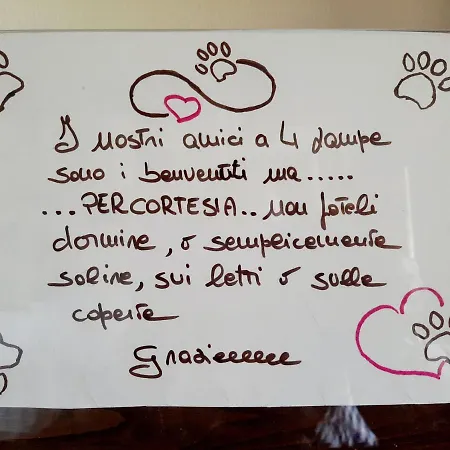 I nostri amici a 4 zampe
sono i benvenuti ma.....
...PER CORTESIA.. non fateli
dormire, o semplicemente
salire, sui letti o sulle
coperte
Grazieeeeee